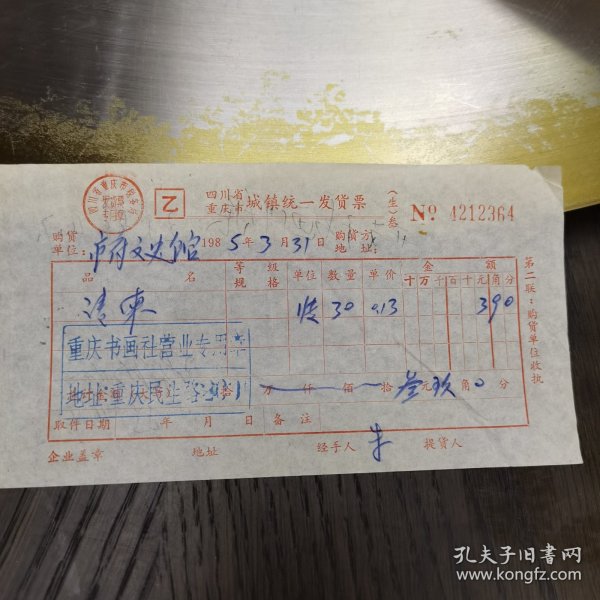 四川省重庆市税务局
发货票
专用章
乙
四川省
重庆市 城镇统一发货票
(生)叁
No 4212364
购货
单位: 市府文史馆 1985年3月31日 购货方
地址:
品名 等级规格 单位 数量 单价 金额
十万千百十元角分
请柬 张 30 0.13 390
重庆书画社营业专用章
地址:重庆民生路
万 仟 佰 拾 叁元玖角0分
取件日期 年 月 日 备注
企业盖章 地址 经手人 朱 提货人
第二联:购货单位收执
孔夫子旧书网
www.kongfz.com